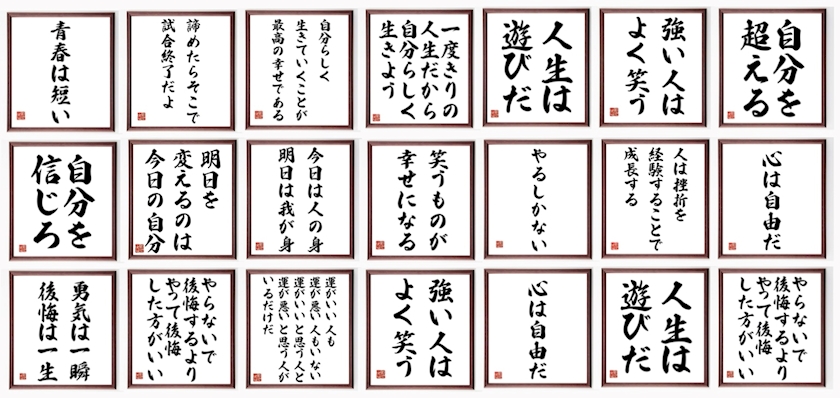 青春は短い
諦めたらそこで
試合終了だよ
自分らしく
生きていくことが
最高の幸せである
一度きりの
人生だから
自分らしく
生きよう
人生は
遊びだ
強い人は
よく笑う
自分を
超える
自分を
信じろ
明日を
変えるのは
今日の自分
今日は人の身
明日は我が身
笑うものが
幸せになる
やるしかない
人は挫折を
経験することで
成長する
心は自由だ
勇気は一瞬
後悔は一生
やらないで
後悔するより
やって後悔
した方がいい
運がいい人も
運が悪い人もいない
運がいいと思う人と
運が悪いと思う人が
いるだけだ
強い人は
よく笑う
心は自由だ
人生は
遊びだ
やらないで
後悔するより
やって後悔
した方がいい